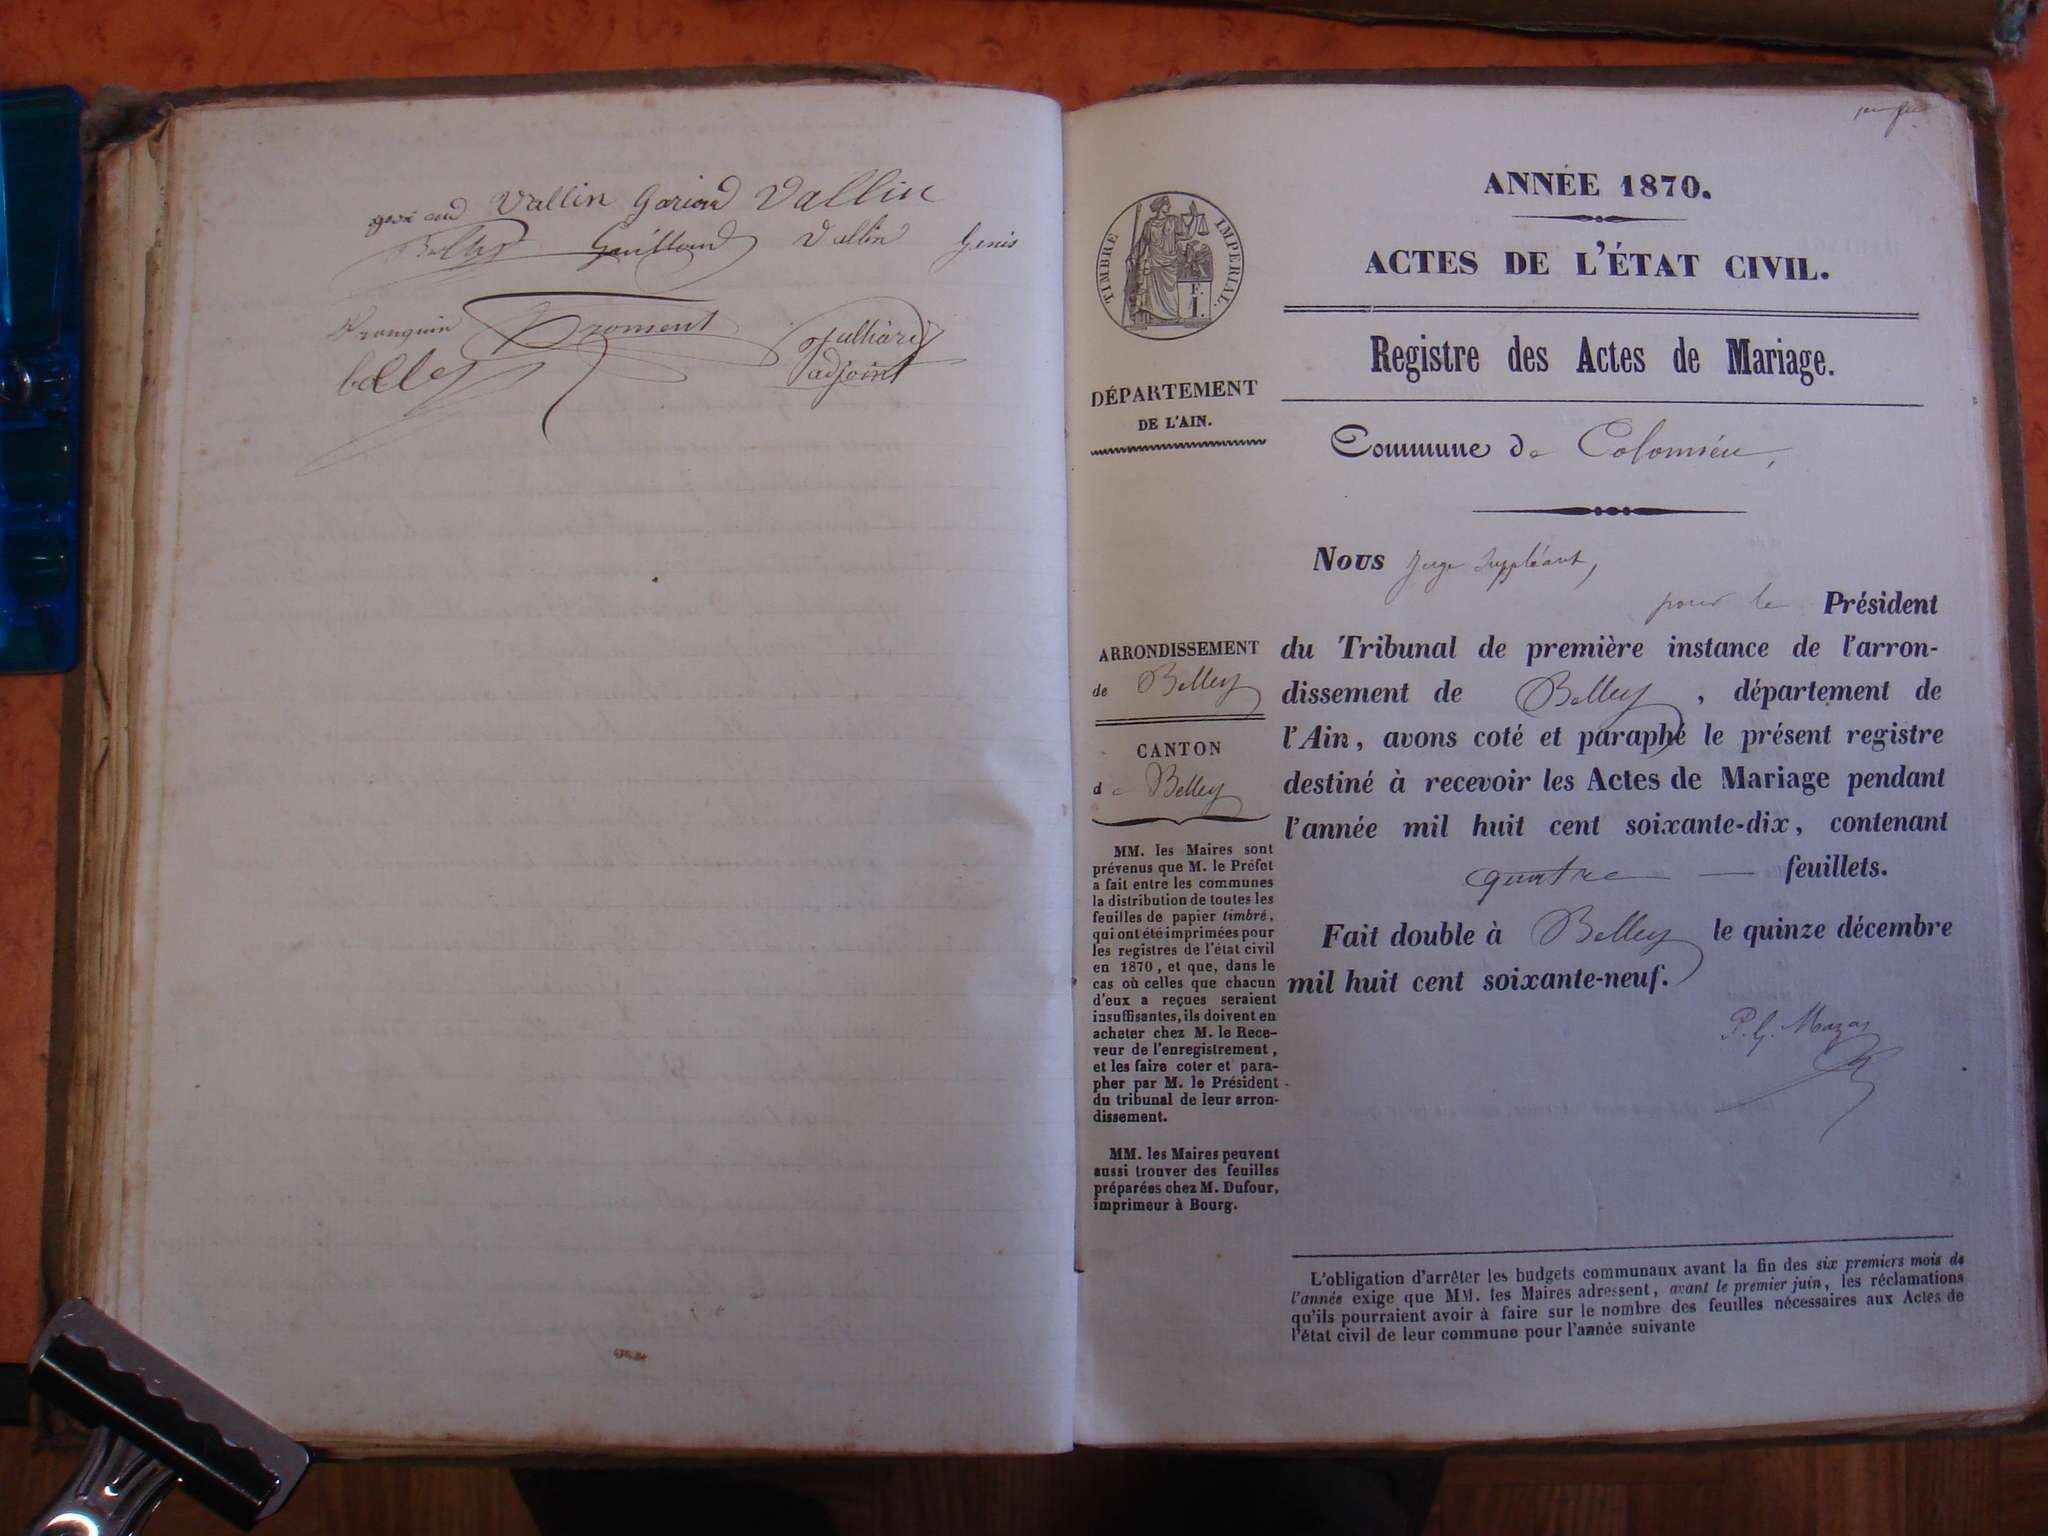 Vallin Gariod Vallin
Guilland Vallin Genis
Froment
adjoint
1er feuillet
ANNÉE 1870.
ACTES DE L'ÉTAT CIVIL.
Registre des Actes de Mariage.
Commune de Colomieu,
TIMBRE IMPÉRIAL.
F.
1.
DÉPARTEMENT
DE L'AIN.
ARRONDISSEMENT
de Belley
CANTON
de Belley
MM. les Maires sont
prévenus que M. le Préfet
a fait entre les communes
la distribution de toutes les
feuilles de papier timbré,
qui ont été imprimées pour
les registres de l'état civil
en 1870, et que, dans le
cas où celles que chacun
d'eux a reçues seraient
insuffisantes, ils doivent en
acheter chez M. le Rece-
veur de l'enregistrement,
et les faire coter et para-
pher par M. le Président
du tribunal de leur arron-
dissement.
MM. les Maires peuvent
aussi trouver des feuilles
préparées chez M. Dufour,
imprimeur à Bourg.
Nous Juge Suppléant,
pour le Président
du Tribunal de première instance de l'arron-
dissement de Belley, département de
l'Ain, avons coté et paraphé le présent registre
destiné à recevoir les Actes de Mariage pendant
l'année mil huit cent soixante-dix, contenant
quatre — feuillets.
Fait double à Belley le quinze décembre
mil huit cent soixante-neuf.
P. G. Mazas
L'obligation d'arrêter les budgets communaux avant la fin des six premiers mois de
l'année exige que MM. les Maires adressent, avant le premier juin, les réclamations
qu'ils pourraient avoir à faire sur le nombre des feuilles nécessaires aux Actes de
l'état civil de leur commune pour l'année suivante